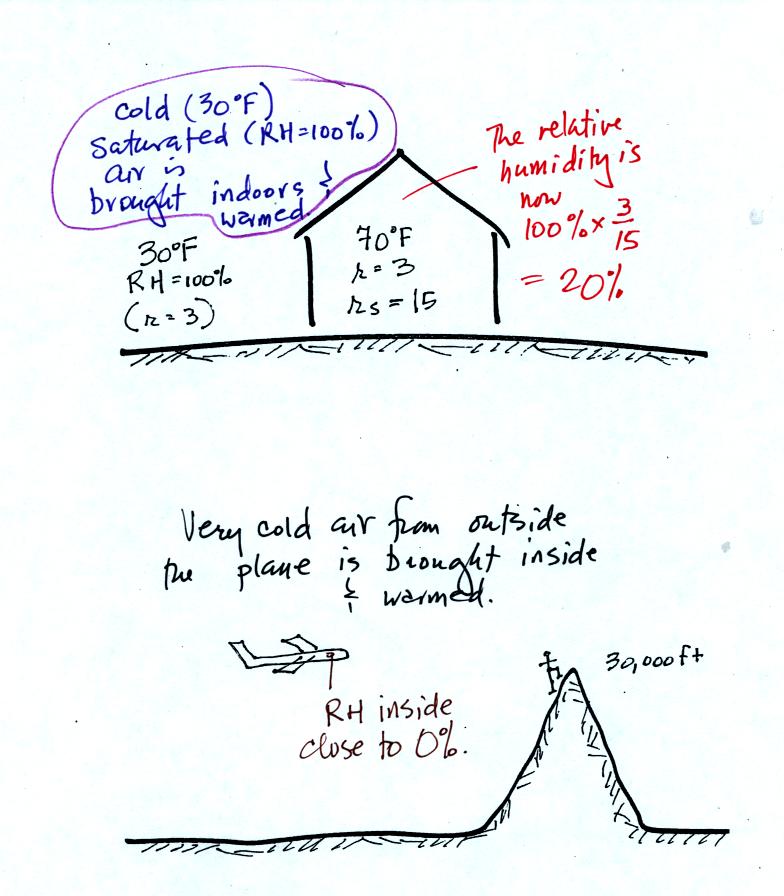 cold (30°F)
saturated (RH=100%)
air is
brought indoors &
warmed.
The relative
humidity is
now
100% × 3/15
= 20%
30°F
RH=100%
(r=3)
70°F
r = 3
rs = 15
Very cold air from outside
the plane is brought inside
& warmed.
30,000 ft
RH inside
close to 0%.